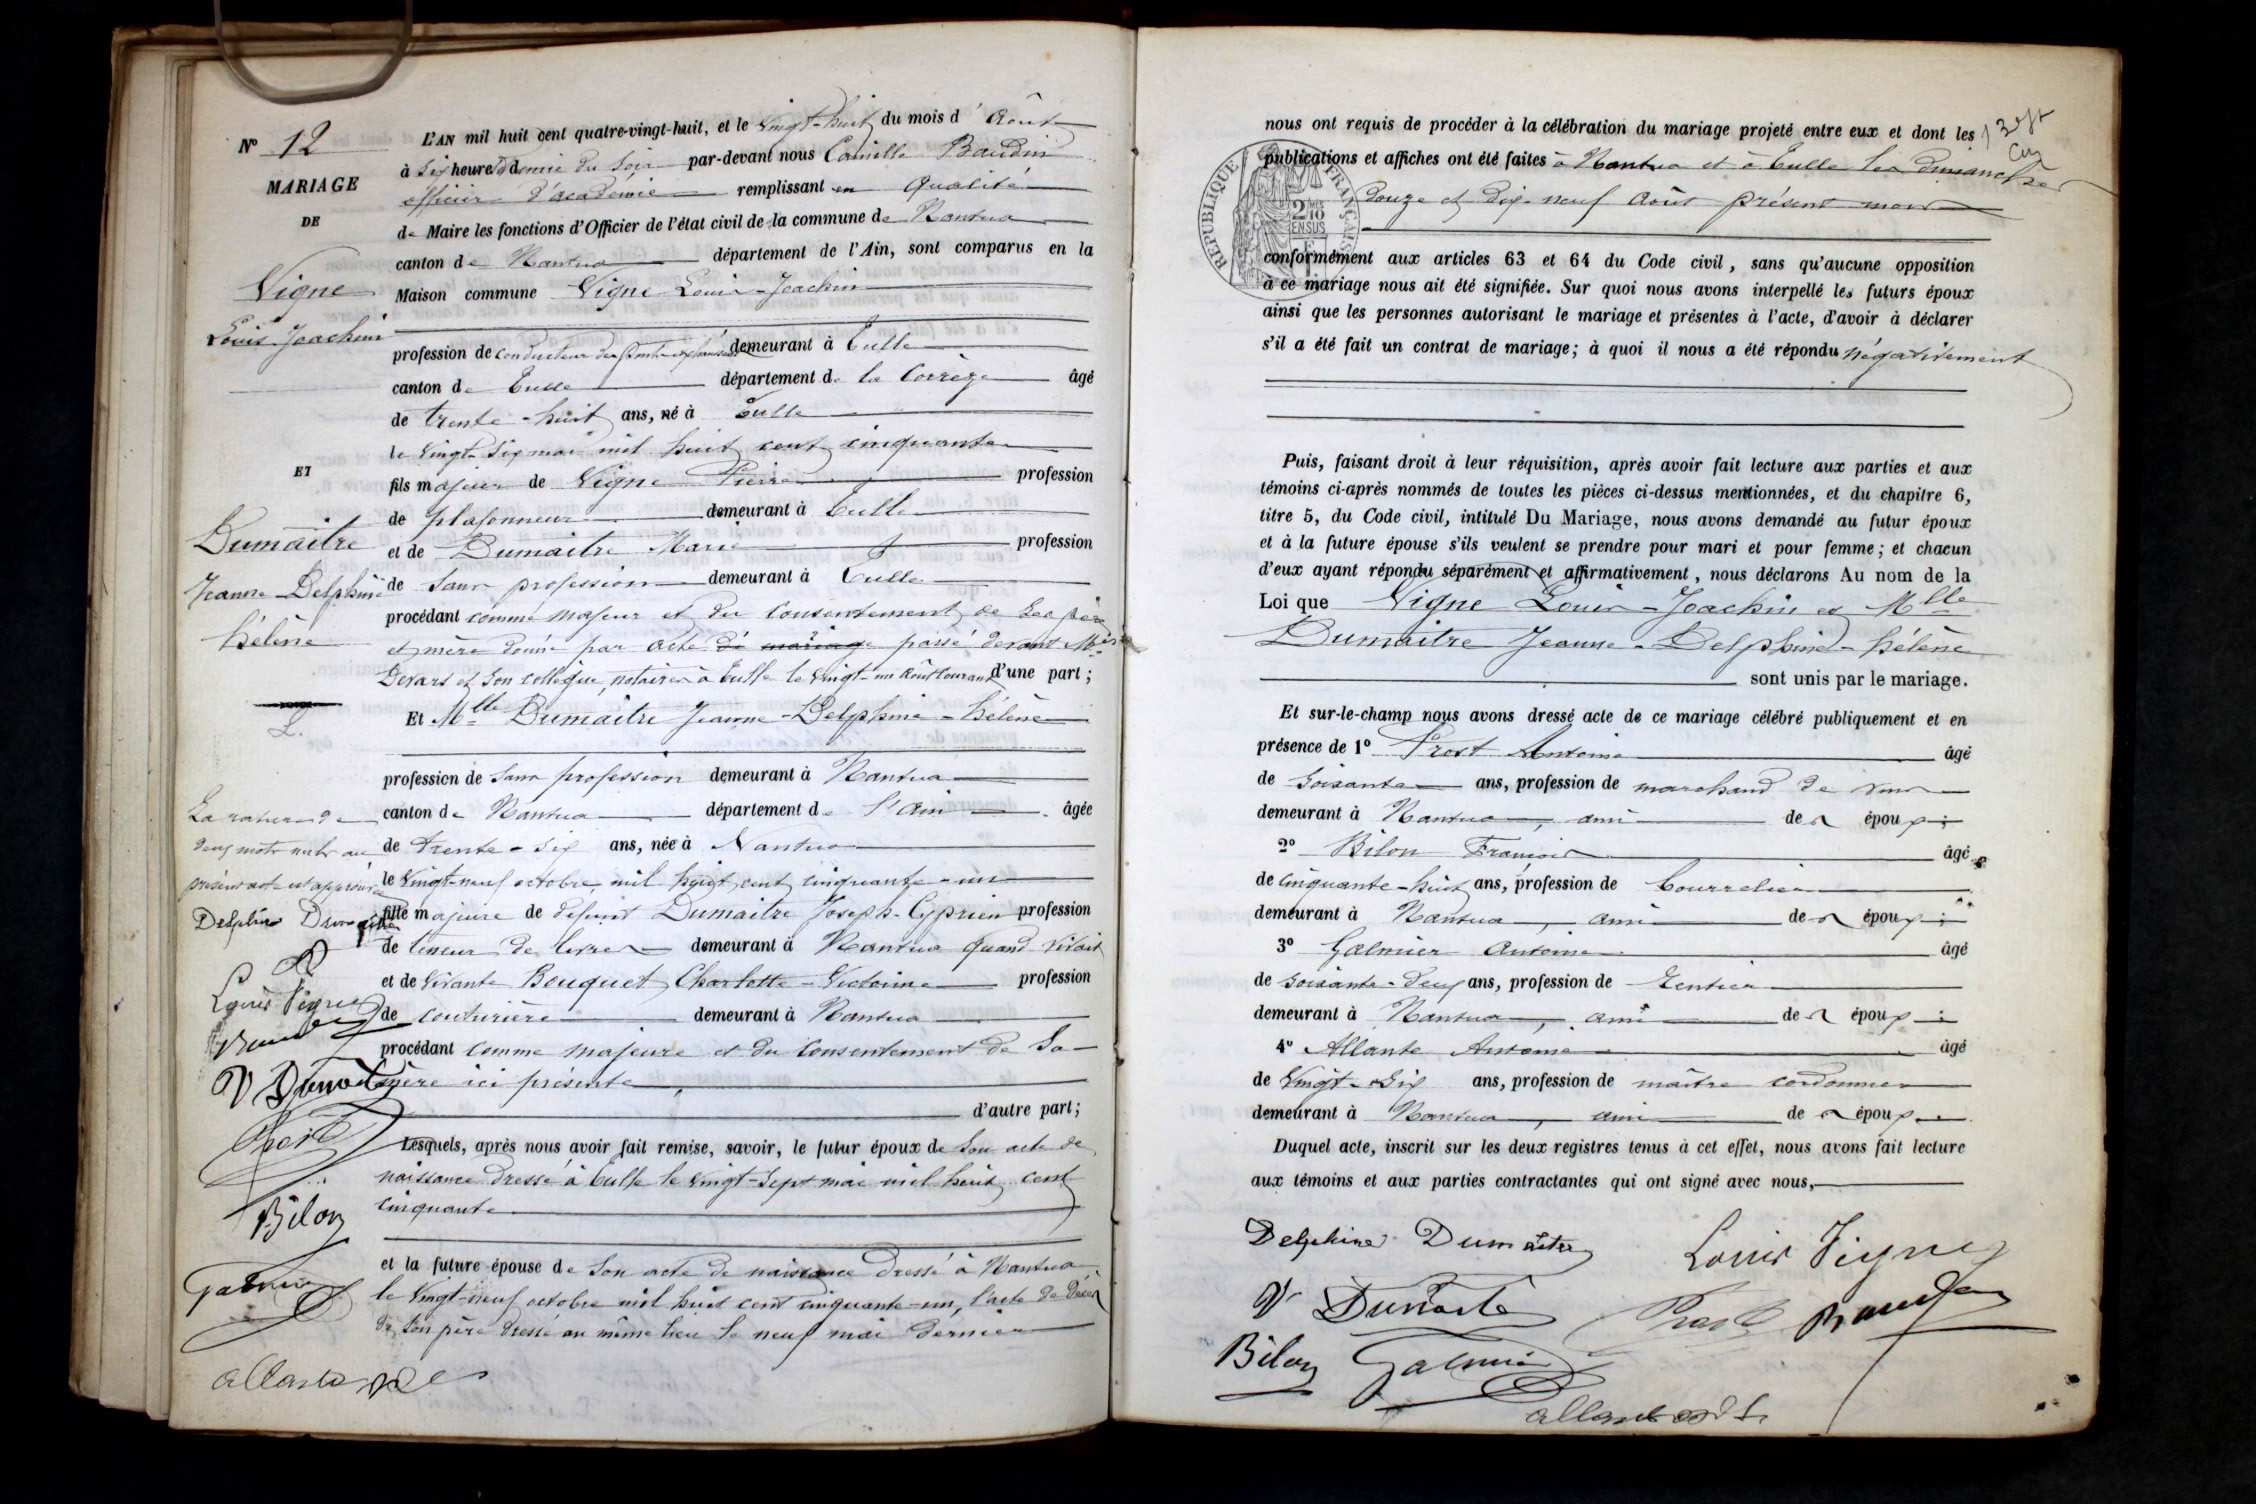 N° 12
MARIAGE
DE
Vigne
Louis Joachim
ET
Dumaitre
Jeanne-Delphine
hélène
La rature de
deux mots nuls au
présent acte est approuvée
Delphine Dumaitre
Louis Vigne
Bilon
Galmier
L'AN mil huit cent quatre-vingt-huit, et le vingt-huit du mois d'Août
à six heures & demie du soir par-devant nous Camille Baudin
officier d'académie remplissant en qualité
de Maire les fonctions d'Officier de l'état civil de la commune de Nantua
canton de Nantua département de l'Ain, sont comparus en la
Maison commune Vigne Louis-Joachim
profession de conducteur des ponts et chaussées demeurant à Tulle
canton de Tulle département de la Corrèze âgé
de trente-huit ans, né à Tulle
le vingt-six mai mil huit cent cinquante
fils majeur de Vigne Pierre profession
de plafonneur demeurant à Tulle
et de Dumaitre Marie profession
de sans profession demeurant à Tulle
procédant comme majeur et du consentement de ses père
et mère donné par acte de mariage passé devant Me
et son collègue, notaires à Tulle le vingt-un août courant d'une part;
Et Mlle Dumaitre Jeanne-Delphine-hélène
profession de sans profession demeurant à Nantua
canton de Nantua département de l'Ain âgée
de trente-six ans, née à Nantua
le vingt-neuf octobre, mil huit cent cinquante-un
fille majeure de défunt Dumaitre Joseph-Cyprien profession
de teneur de livres demeurant à Nantua quand vivait
et de vivante Bouquet Charlotte-Victorine profession
de couturière demeurant à Nantua
procédant comme majeure et du consentement de sa
mère ici présente
d'autre part;
Lesquels, après nous avoir fait remise, savoir, le futur époux de son acte de
naissance dressé à Tulle le vingt-sept mai mil huit cent
cinquante
et la future épouse de son acte de naissance dressé à Nantua
le vingt-neuf octobre mil huit cent cinquante-un, l'acte de décès
de son père dressé au même lieu le neuf mai dernier
nous ont requis de procéder à la célébration du mariage projeté entre eux et dont les
publications et affiches ont été faites à Nantua et à Tulle les dimanches
douze et dix-neuf août présent mois
RÉPUBLIQUE FRANÇAISE
2/10 EN SUS
conformément aux articles 63 et 64 du Code civil, sans qu'aucune opposition
à ce mariage nous ait été signifiée. Sur quoi nous avons interpellé les futurs époux
ainsi que les personnes autorisant le mariage et présentes à l'acte, d'avoir à déclarer
s'il a été fait un contrat de mariage; à quoi il nous a été répondu négativement
Puis, faisant droit à leur réquisition, après avoir fait lecture aux parties et aux
témoins ci-après nommés de toutes les pièces ci-dessus mentionnées, et du chapitre 6,
titre 5, du Code civil, intitulé Du Mariage, nous avons demandé au futur époux
et à la future épouse s'ils veulent se prendre pour mari et pour femme; et chacun
d'eux ayant répondu séparément et affirmativement, nous déclarons Au nom de la
Loi que Vigne Louis-Joachim et Mlle
Dumaitre Jeanne-Delphine-hélène
sont unis par le mariage.
Et sur-le-champ nous avons dressé acte de ce mariage célébré publiquement et en
présence de 1° Prost Antoine âgé
de soixante ans, profession de marchand de vins
demeurant à Nantua, ami des époux;
2° Bilon François âgé
de cinquante-huit ans, profession de Bourrelier
demeurant à Nantua, ami des époux;
3° Galmier Antoine âgé
de soixante-deux ans, profession de Rentier
demeurant à Nantua, ami des époux;
4° Allante Antoine âgé
de vingt-six ans, profession de maître cordonnier
demeurant à Nantua, ami des époux
Duquel acte, inscrit sur les deux registres tenus à cet effet, nous avons fait lecture
aux témoins et aux parties contractantes qui ont signé avec nous,
Delphine Dumaitre Louis Vigne
Prost Baudin
Bilon Galmier